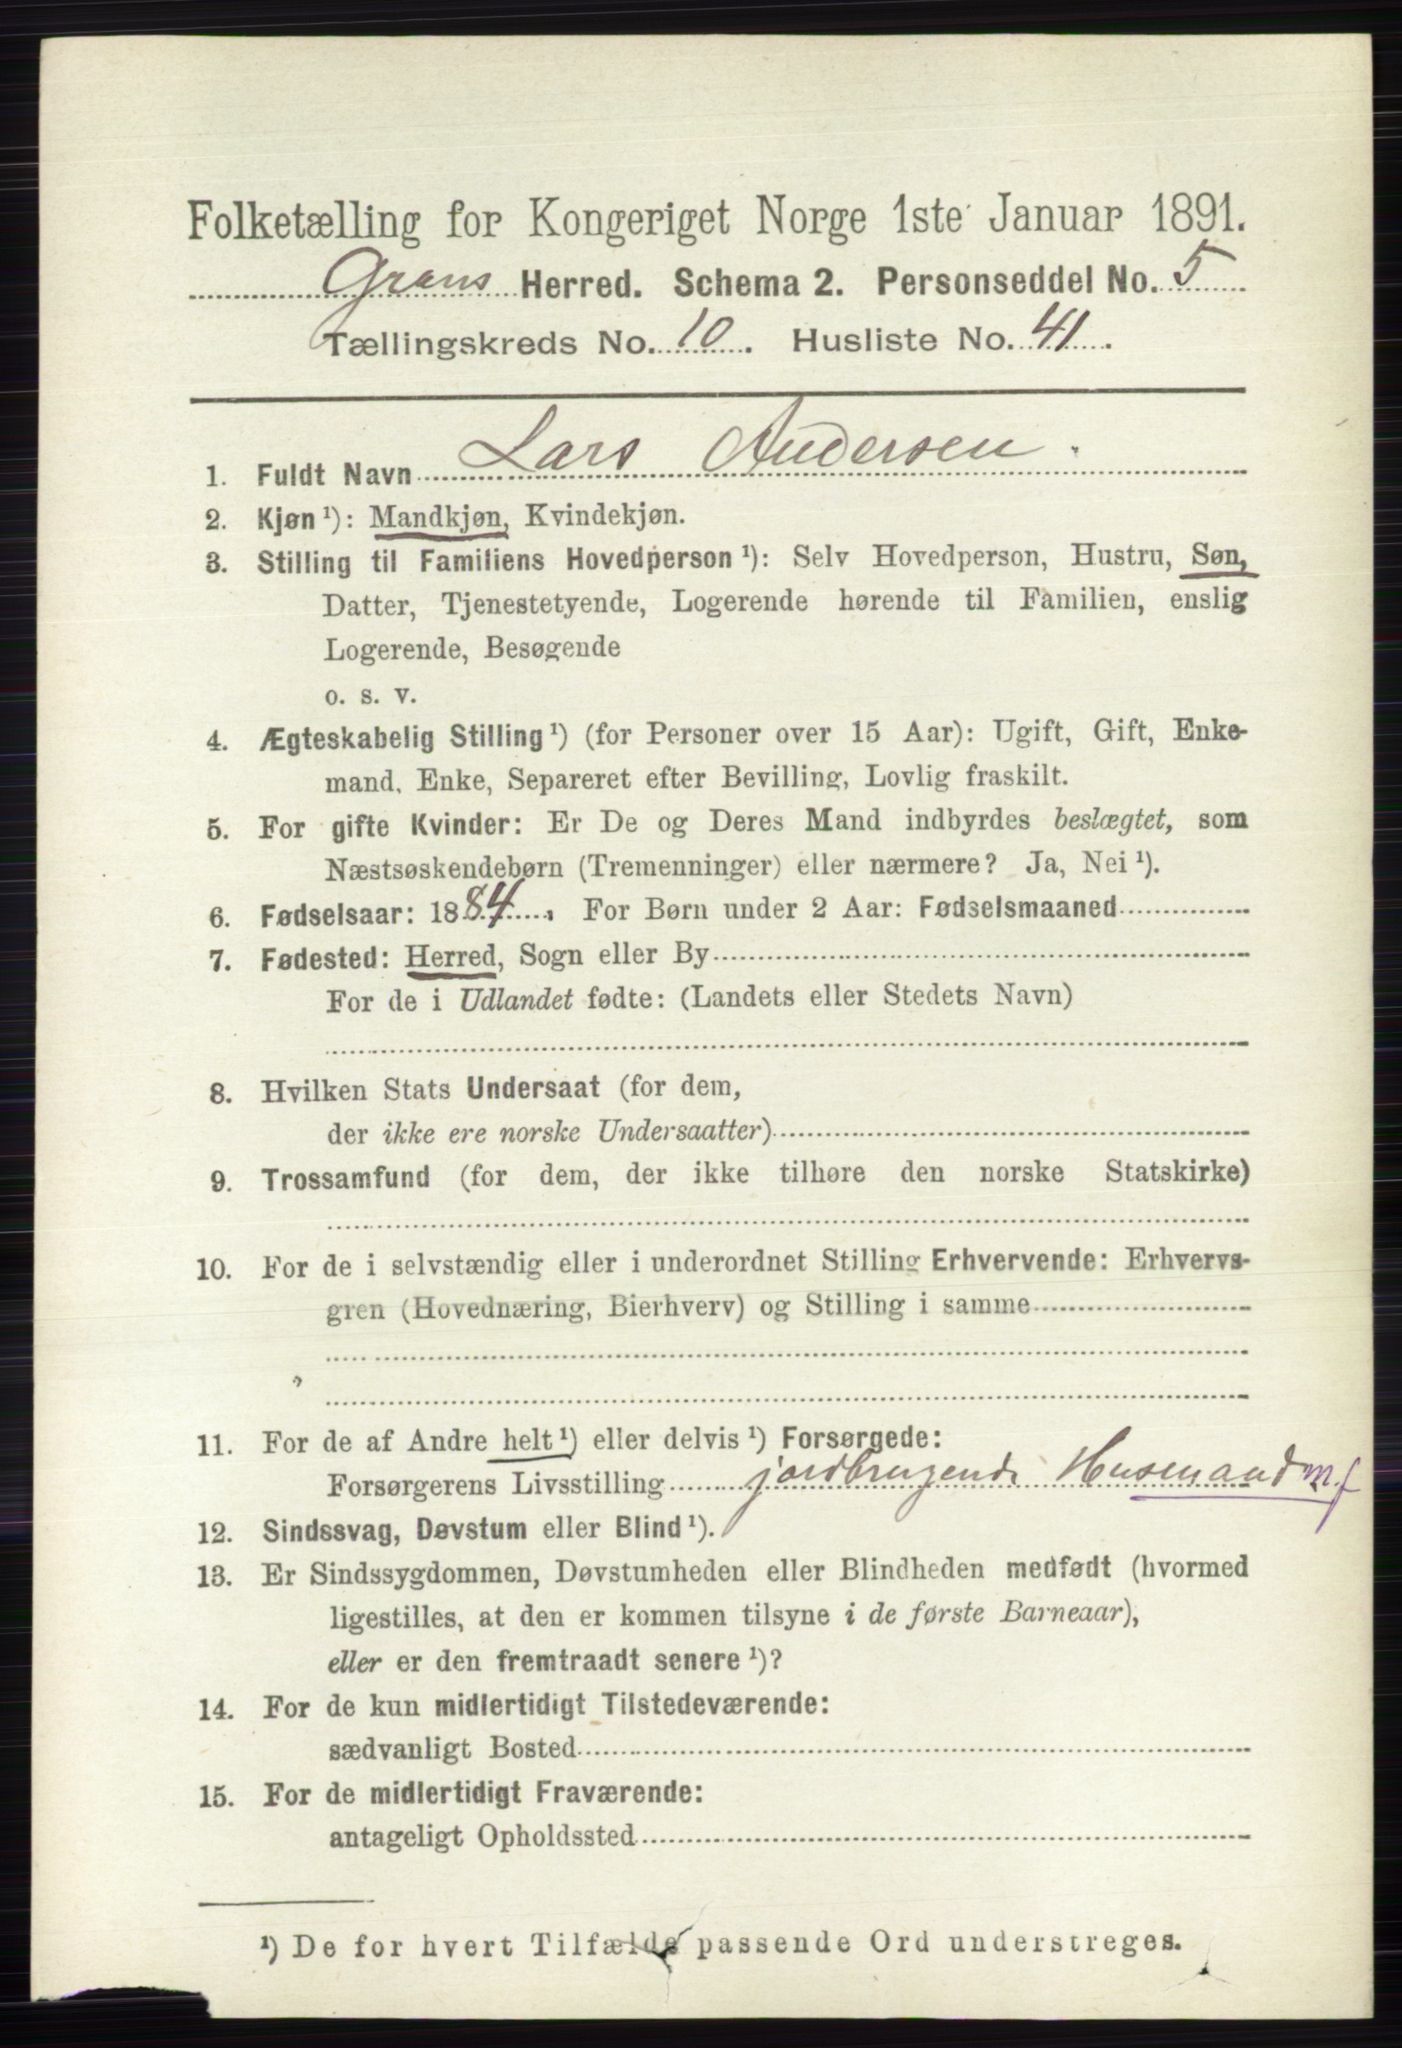 Folketælling for Kongeriget Norge 1ste Januar 1891.
Grans Herred. Schema 2. Personseddel No. 5
Tællingskreds No. 10. Husliste No. 41.
1. Fuldt Navn Lars Andersen.
2. Kjøn ¹): Mandkjøn, Kvindekjøn.
3. Stilling til Familiens Hovedperson ¹): Selv Hovedperson, Hustru, Søn,
Datter, Tjenestetyende, Logerende hørende til Familien, enslig
Logerende, Besøgende
o. s. v.
4. Ægteskabelig Stilling ¹) (for Personer over 15 Aar): Ugift, Gift, Enke-
mand, Enke, Separeret efter Bevilling, Lovlig fraskilt.
5. For gifte Kvinder: Er De og Deres Mand indbyrdes beslægtet, som
Næstsøskendebørn (Tremenninger) eller nærmere? Ja, Nei ¹).
6. Fødselsaar: 1884. For Børn under 2 Aar: Fødselsmaaned
7. Fødested: Herred, Sogn eller By
For de i Udlandet fødte: (Landets eller Stedets Navn)
8. Hvilken Stats Undersaat (for dem,
der ikke ere norske Undersaatter)
9. Trossamfund (for dem, der ikke tilhøre den norske Statskirke)
10. For de i selvstændig eller i underordnet Stilling Erhvervende: Erhvervs-
gren (Hovednæring, Bierhverv) og Stilling i samme
11. For de af Andre helt ¹) eller delvis ¹) Forsørgede:
Forsørgerens Livsstilling jordbrugende Husmand m. f
12. Sindssvag, Døvstum eller Blind ¹).
13. Er Sindssygdommen, Døvstumheden eller Blindheden medfødt (hvormed
ligestilles, at den er kommen tilsyne i de første Barneaar),
eller er den fremtraadt senere ¹)?
14. For de kun midlertidigt Tilstedeværende:
sædvanligt Bosted
15. For de midlertidigt Fraværende:
antageligt Opholdssted
¹) De for hvert Tilfælde passende Ord understreges.